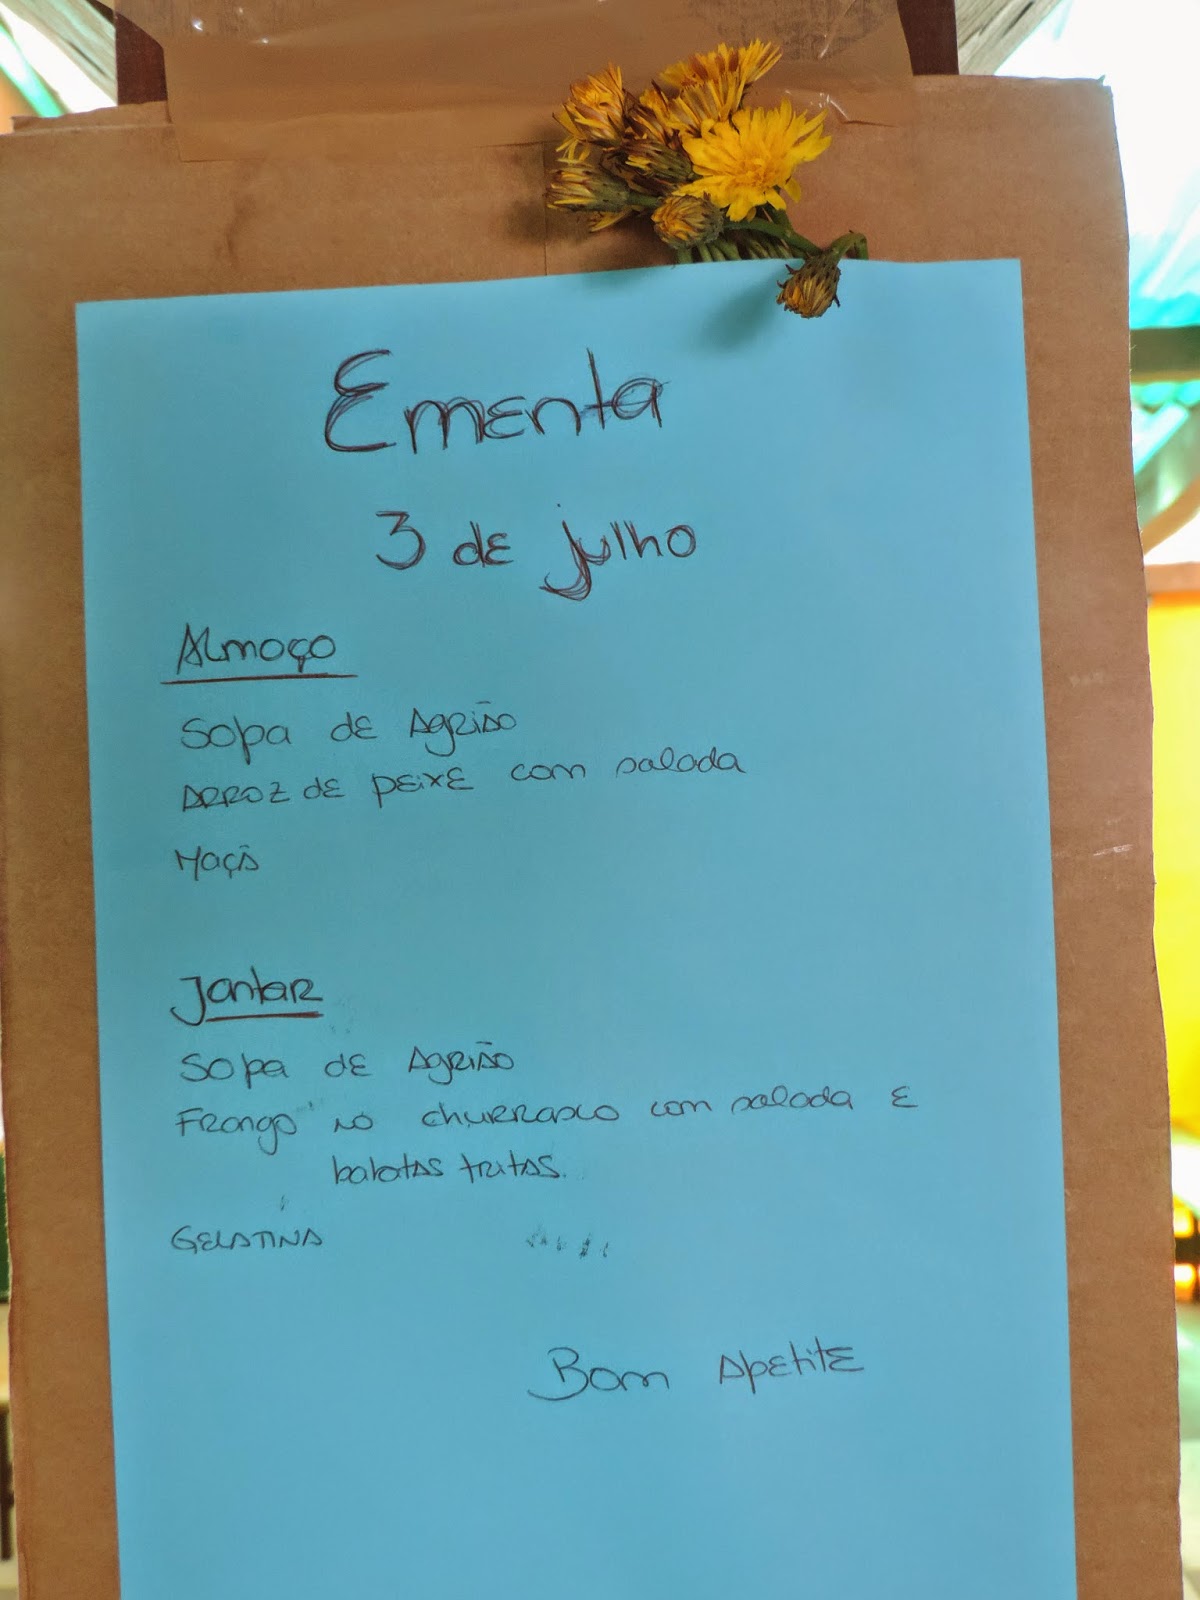 Ementa
3 de julho
Almoço
Sopa de Agrião
Arroz de peixe com salada
Maçã
Jantar
Sopa de Agrião
Frango no churrasco com salada e
batatas fritas.
Gelatina
Bom apetite